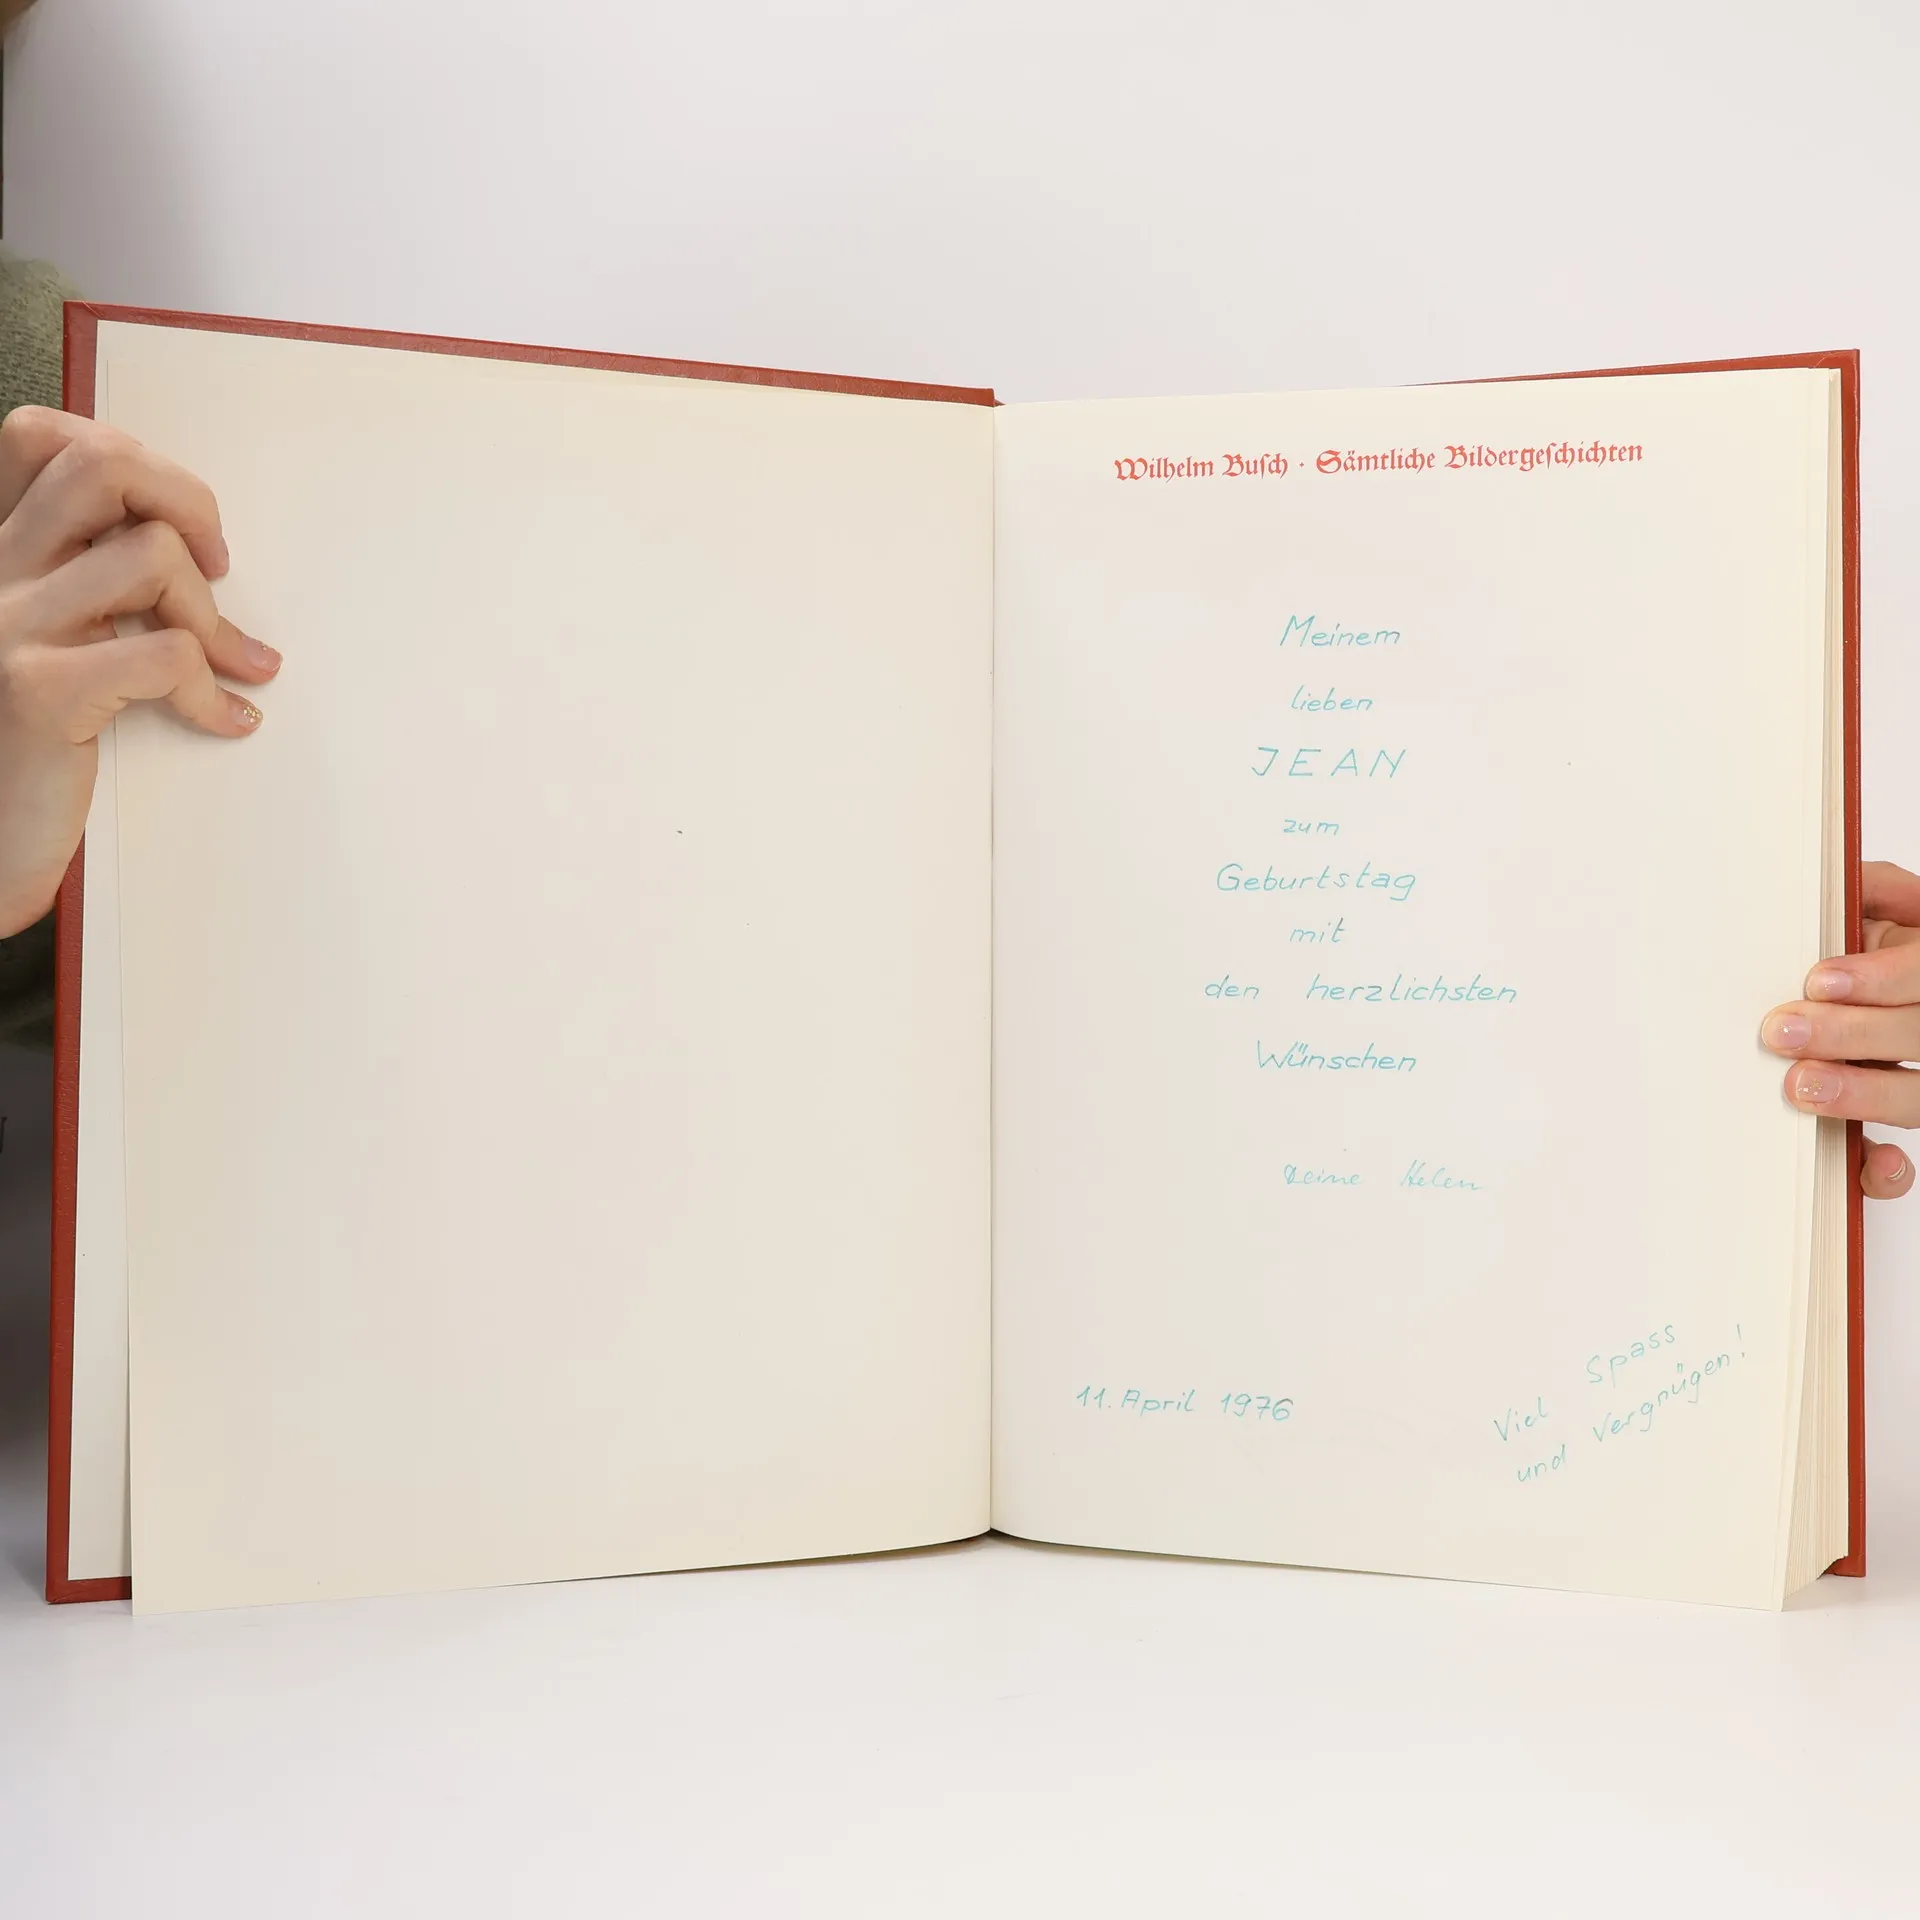 Wilhelm Busch · Sämtliche Bildergeschichten
Meinem
lieben
JEAN
zum
Geburtstag
mit
den herzlichsten
Wünschen
Deine Helen
11. April 1976
Viel Spass
und Vergnügen!